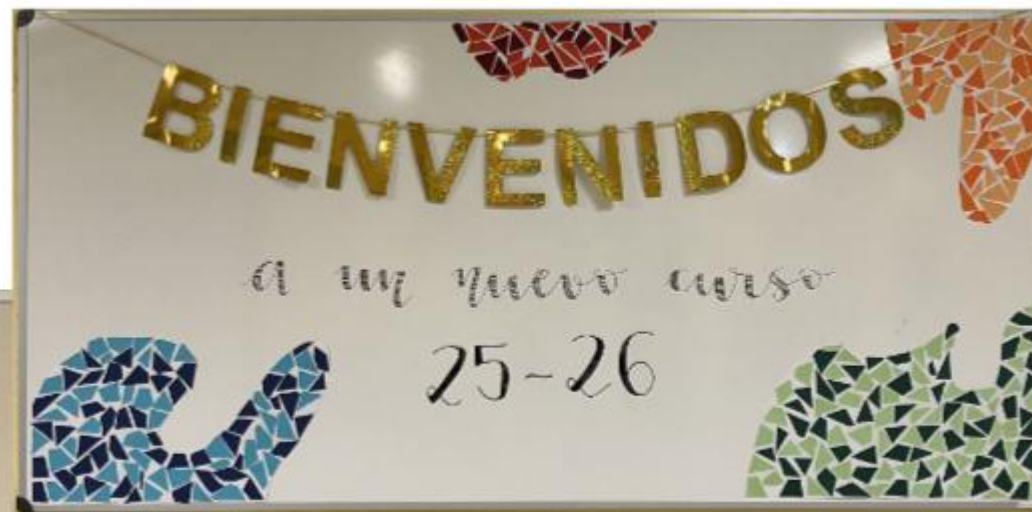 BIENVENIDOS
a un nuevo curso
25-26